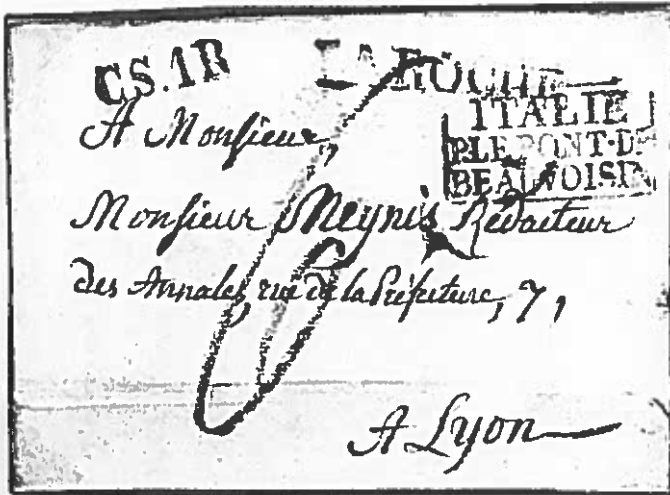 C.S.1R
LA ROCHE
ITALIE
P.LE PONT-DE
BEAUVOISIN
A Monsieur,
Monsieur Meynis Rédacteur
des Annales, rue de la Préfecture, 7,
A Lyon